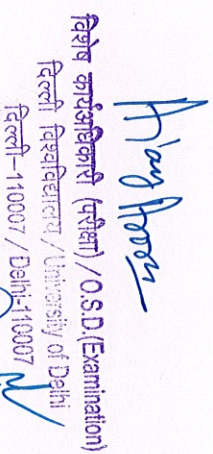 विशेष कार्यअधिकारी (परीक्षा) / O.S.D.(Examination)
दिल्ली विश्वविद्यालय / University of Delhi
दिल्ली-110007 / Delhi-110007